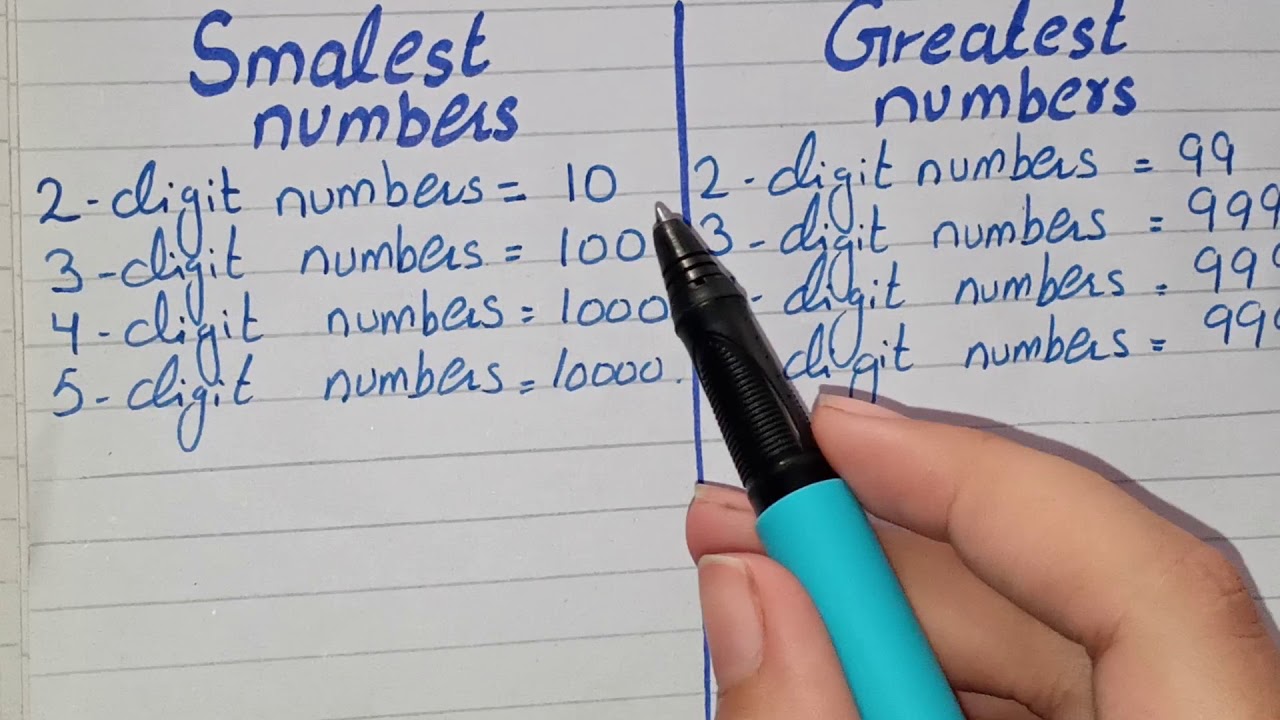 Smalest
numbers
2-digit numbers = 10
3-digit numbers = 100
4-digit numbers = 1000
5-digit numbers = 10000.
Greatest
numbers
2-digit numbers = 99
3-digit numbers = 999
-digit numbers =
digit numbers =